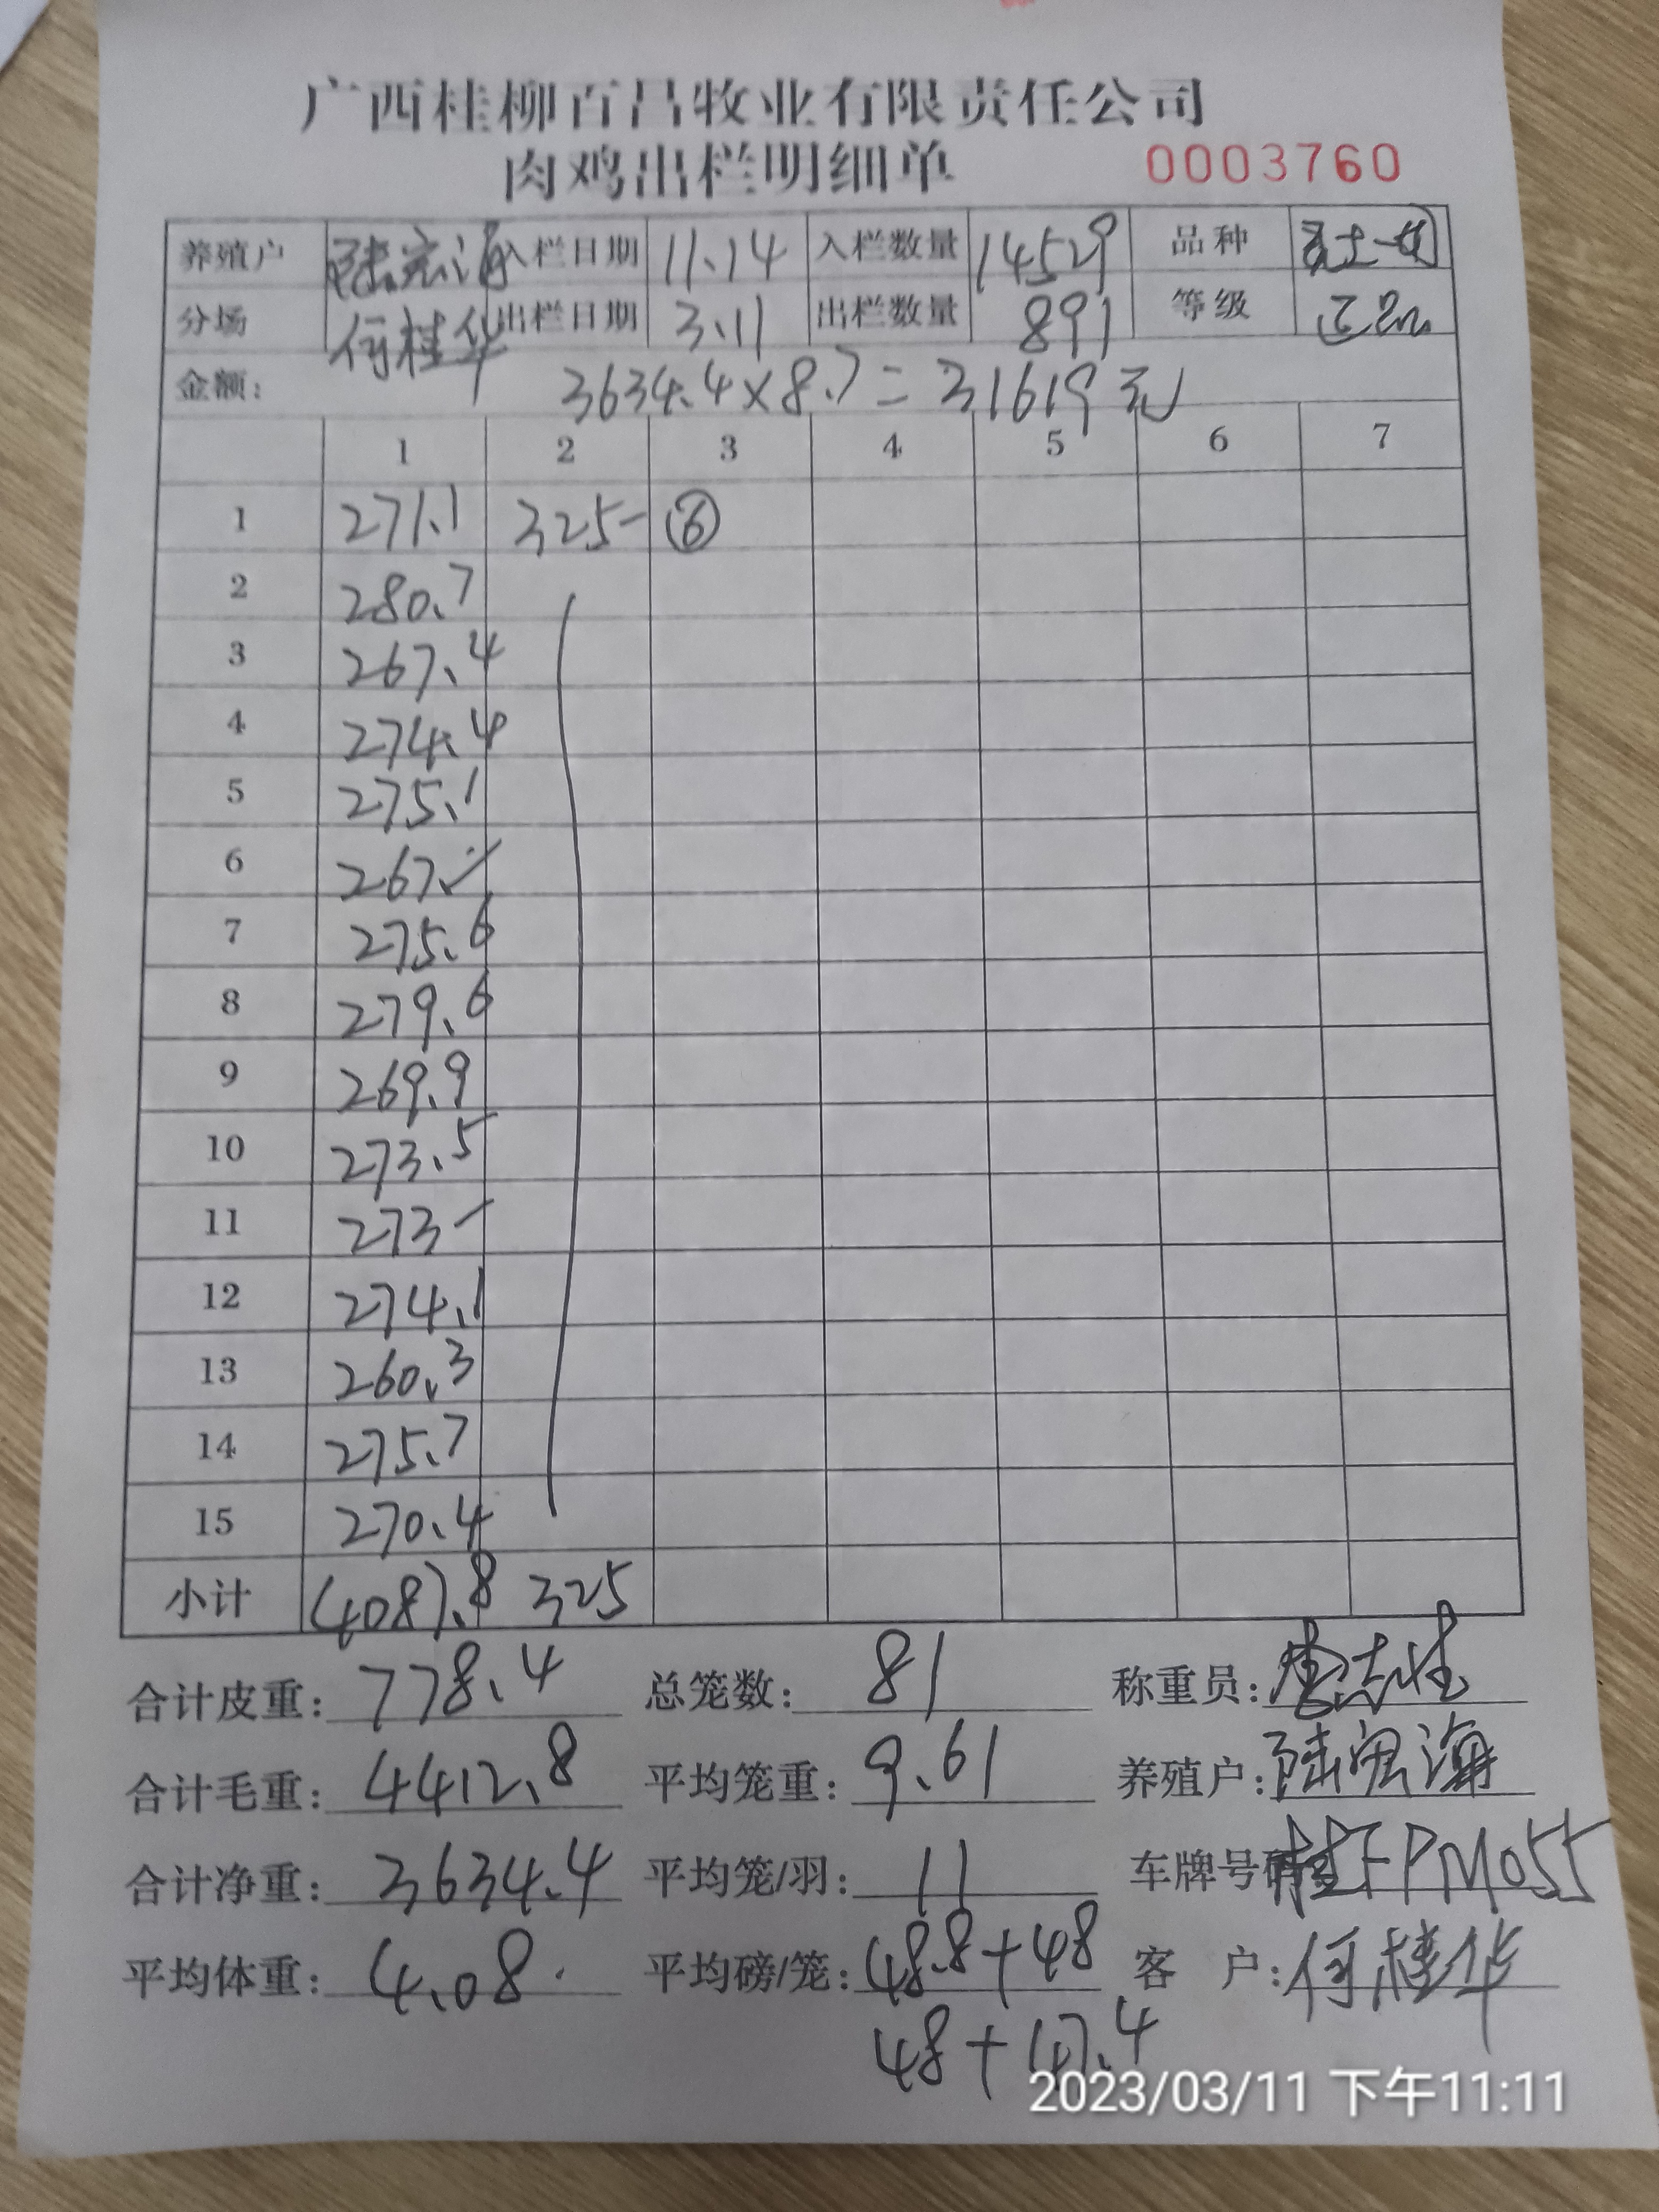 广西桂柳百昌牧业有限责任公司
肉鸡出栏明细单 0003760
养殖户 陆宏海 入栏日期 11.14 入栏数量 14529 品种
分场 何桂华 出栏日期 3.11 出栏数量 891 等级 正品
金额: 3634.4×8.7=31619元
1 2 3 4 5 6 7
1 271.1 325- ⑥
2 280.7
3 267.4
4 274.4
5 275.1
6 267
7 275.6
8 279.6
9 269.9
10 273.5
11 273-
12 274.1
13 260.3
14 275.7
15 270.4
小计 4087.8 325
合计皮重: 778.4 总笼数: 81 称重员:
合计毛重: 4412.8 平均笼重: 9.61 养殖户: 陆宏海
合计净重: 3634.4 平均笼/羽: 11 车牌号码 桂FPM055
平均体重: 4.08 平均磅/笼: 48.8+48 客 户: 何桂华
48+47.4
2023/03/11 下午11:11